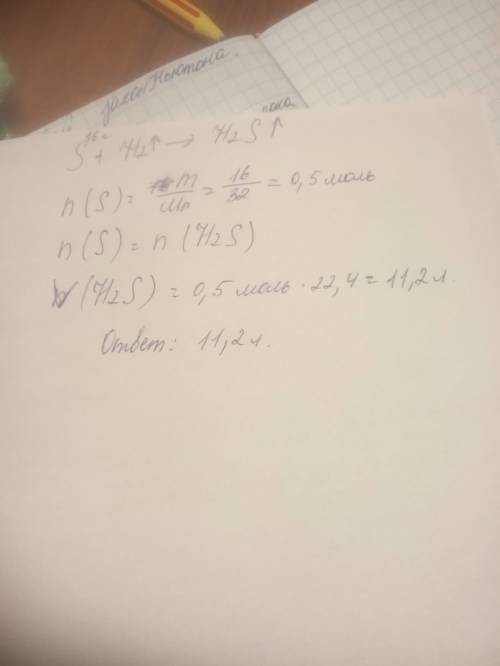 закон Ньютона.
16г пока
S + H2↑ → H2S↑
n(S) = m/Mr = 16/32 = 0,5 моль
n(S) = n(H2S)
V(H2S) = 0,5 моль · 22,4 = 11,2 л.
Ответ: 11,2 л.